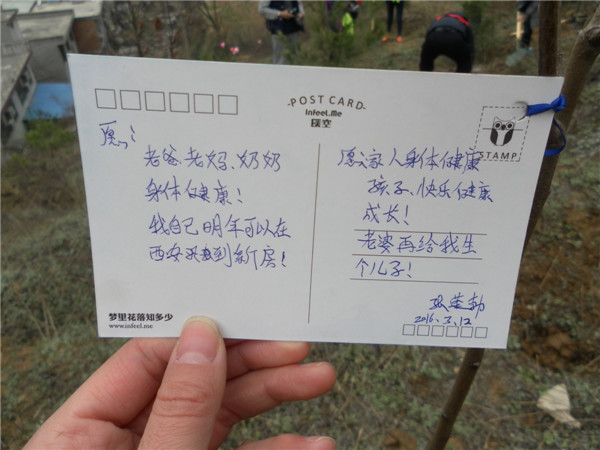 POST CARD
Infeel.Me
STAMP
愿：
老爸、老妈、奶奶
身体健康！
我自己明年可以在
西安买到新房！
愿：家人身体健康
孩子、快乐健康
成长！
老婆再给我生
个儿子！
2016.3.12
梦里花落知多少
www.infeel.me